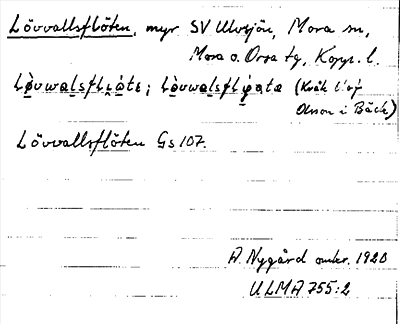 Lövvallsflöten, myr SV Ulvsjön, Mora sn,
Mora o. Orsa tg, Kopp. l.
(Kråk Olof
Olsson i Bäck)
Lövvallsflöten Gs 107.
A. Nygård omkr. 1920
ULMA 755:2